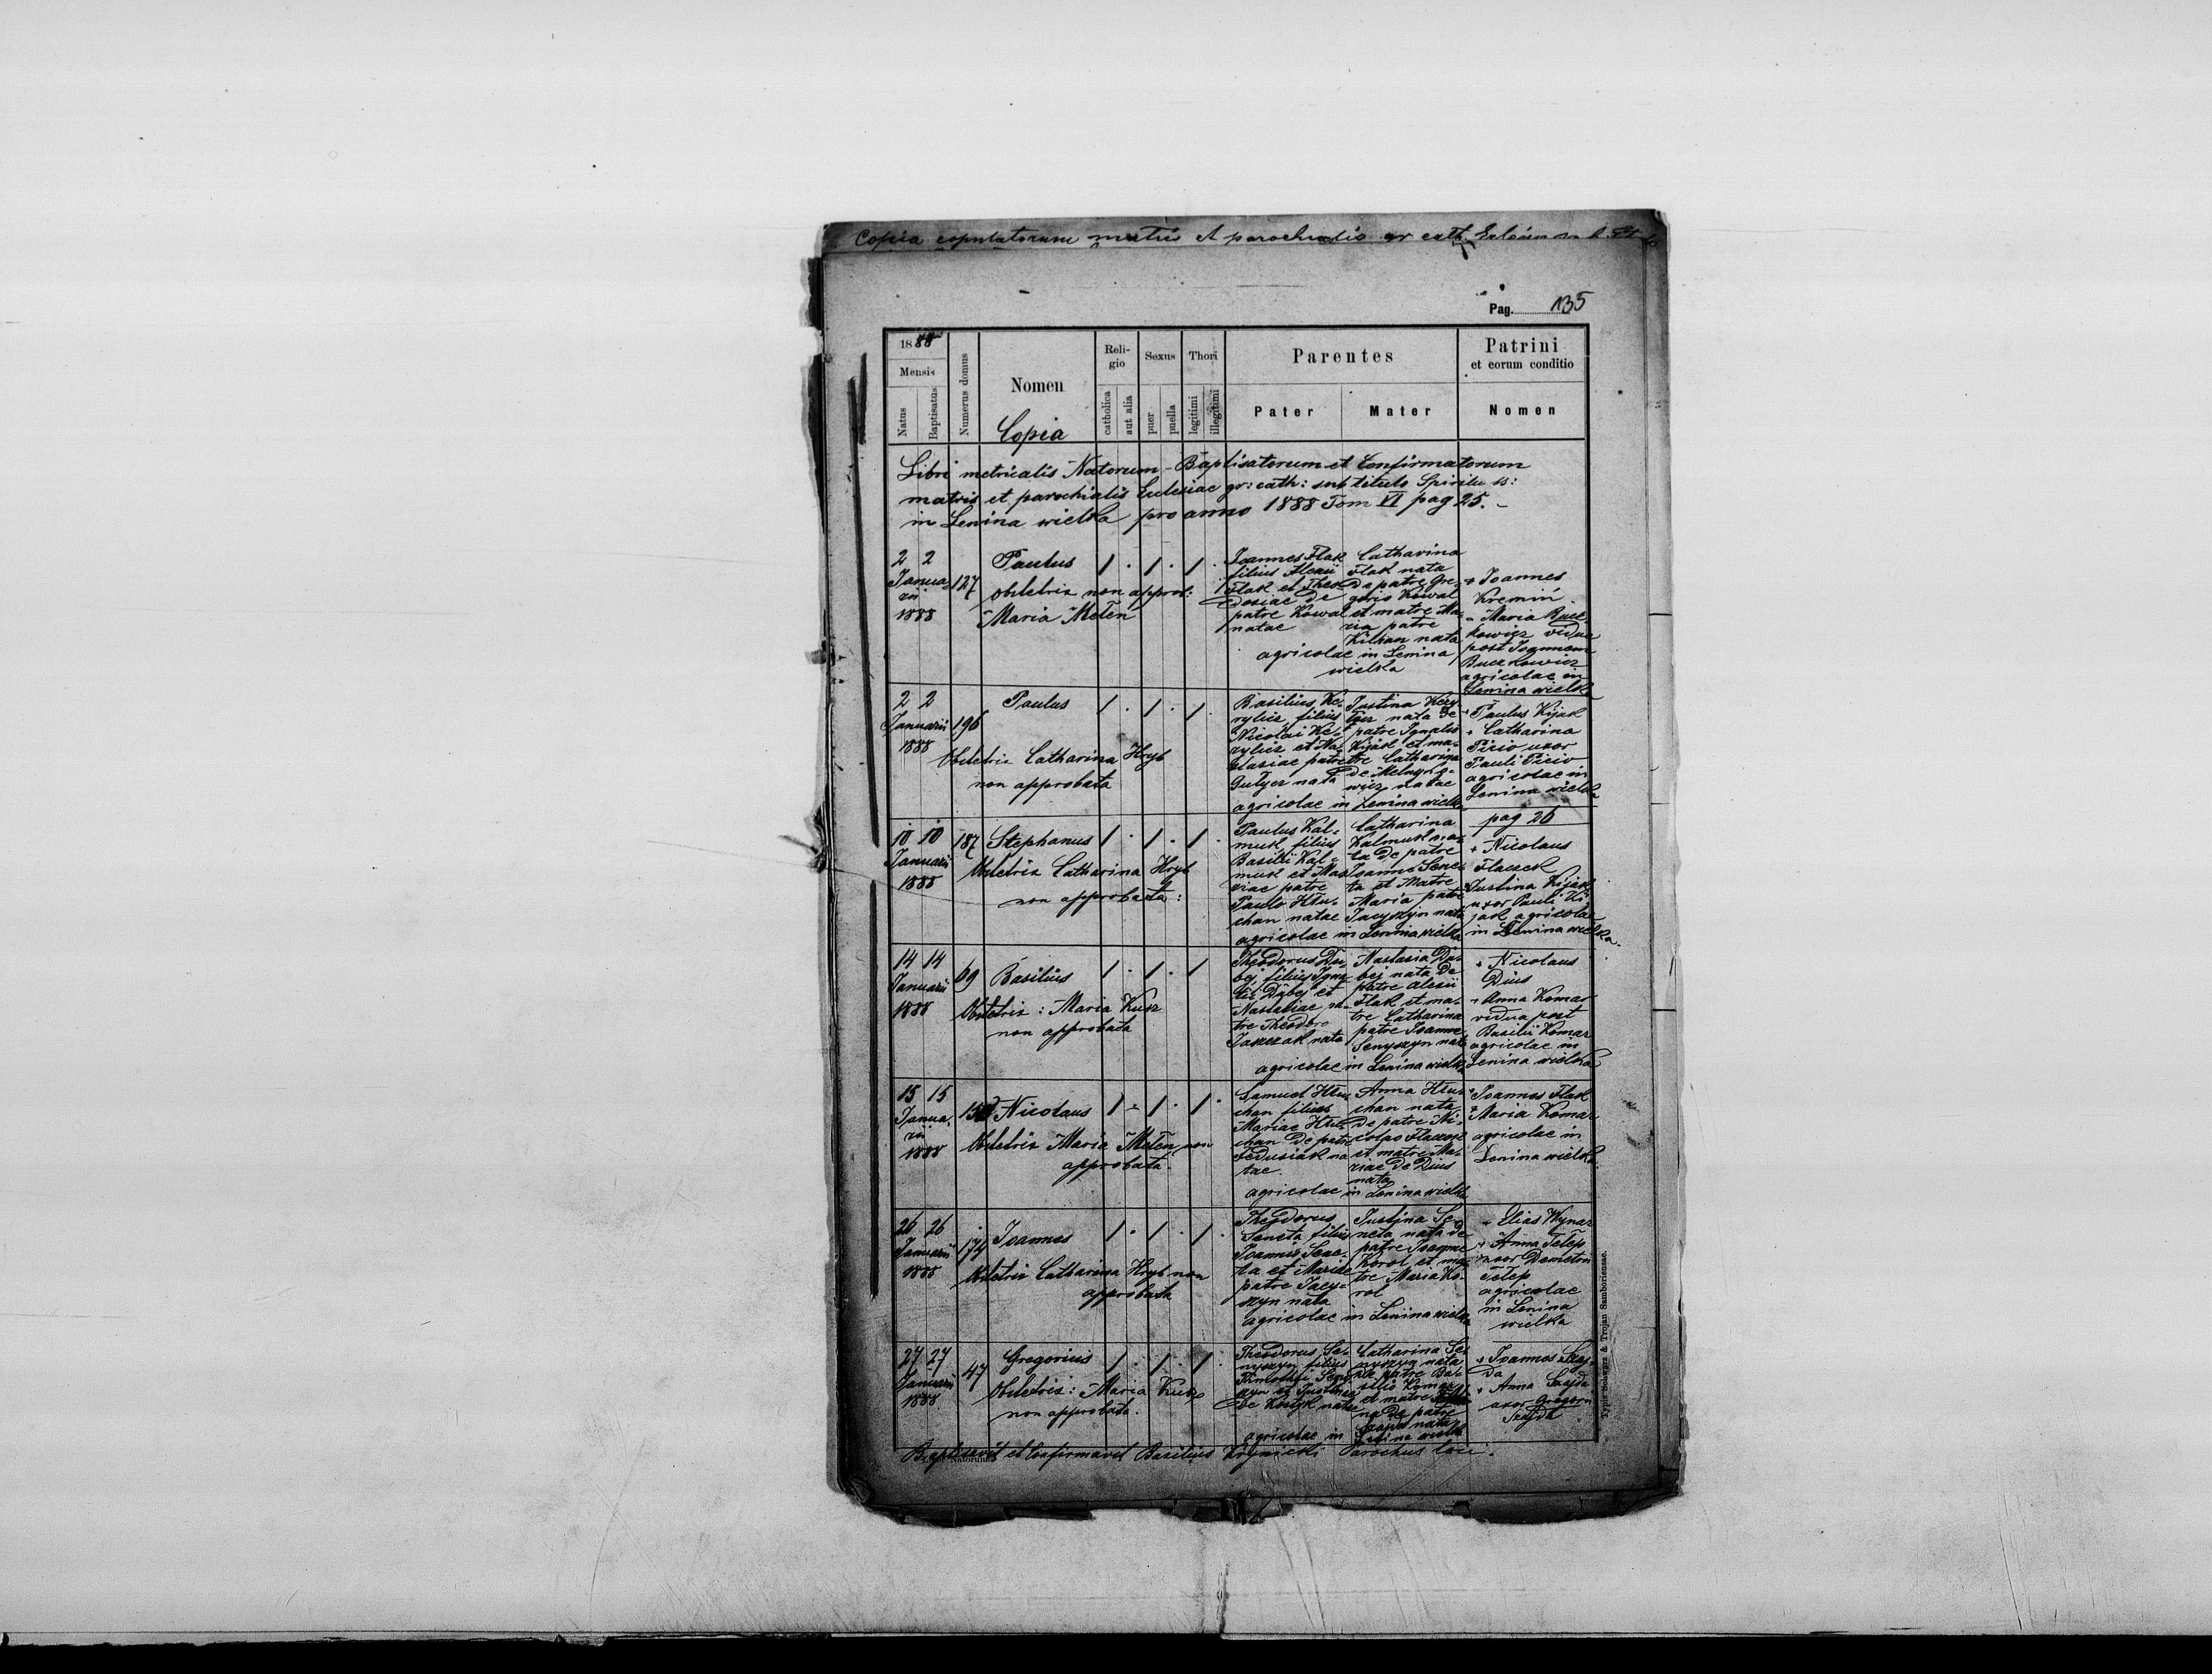 Copia copulatorum matris et parochialis gr cath Ecclesiae
Pag. 135
1888
Mensis
Natus
Baptisatus
Numerus domus
Nomen
Copia
Religio
catholica
aut alia
Sexus
puer
puella
Thori
legitimi
illegitimi
Parentes
Pater
Mater
Patrini
et eorum conditio
Nomen
Libri metricalis Natorum-Baptisatorum et Confirmatorum
matris et parochialis Ecclesiae gr: cath: sub titulo Spiritu ss:
in Lenina wielka pro anno 1888 Tom VI pag 25.-
2 2
Janua-
rii
1888
127
Paulus
obstetrix non approb:
Maria Meteń
1 . 1 . 1 .
Joannes Flak
filius Alexii
Flak et Theo
dosiae de
patre Kowal
natae
Catharina
Flak nata
de patre Gre-
gorio Kowal
et matre Ma-
ria patre
Kilhan nata
agricolae in Lenina
wielka
+ Joannes
Kremiń
- Maria Bucz
kowicz vidua
post Joannem
Buczkowicz
agricolae in
Lenina wielka
2 2
Januarii
1888
196
Paulus
Obstetrix Catharina Hryb
non approbata
1 . 1 . 1 .
Basilius Ke-
rylicz, filius
Nicolai Ke-
rylicz et Na-
stasiae patre
nata
Justina
nata de
patre Ignatio
Kijak et ma-
tre Catharina
de Melnyko-
wicz natae
agricolae in Lenina wielka
+ Paulus Kijak
+ Catharina
Picio uxor
Pauli Picio
agricolae in
Lenina wielka
10 10
Januarii
1888
187
Stephanus
Obstetrix Catharina Hryb
non approbata:
1 . 1 . 1 .
Paulus Kal-
muk, filius
Basilii Kal-
muk et Ma-
riae patre
Paulo Hłu-
chan natae
Catharina
Kalmuk na-
ta de patre
Joanne Sene-
ta et Matre
Maria patre
Jacyszyn nata
agricolae in Lenina wielka
pag 26
+ Nicolaus
Flaczek
Justina Kijak
uxor Pauli Ki
jak agricolae
in Lenina wielka.
14 14
Januarii
1888
69
Basilius
Obstetrix: Maria Kusz
non approbata
1 . 1 . 1
Theodorus Du-
bej filius Igna-
tii Dubej et
Nastasiae pa-
tre Theodoro
Jaszczak nata
Nastasia Du-
bej nata de
patre Alexii
Flak et ma-
tre Catharina
patre Joanne
Senyszyn nata
agricolae in Lenina wielka
+ Nicolaus
Dius
+ Anna Komar
vidua post
Basilii Komar
agricolae in
Lenina wielka
15 15
Janua-
rii
1888
Nicolaus
Obstetrix Maria Meteń non
approbata.
1 - 1 . 1 .
Samuel Hłu
chan filius
Mariae Hłu-
chan de patre
Fedusiak na
tae
Anna Hłu-
chan nata
de patre Ni-
colao Flaczek
et matre Ma-
riae de Dius
nata
agricolae in Lenina wielka
+ Joannes Flak
+ Maria Komar
agricolae in
Lenina wielka
26 26
Januarii
1888
174
Joannes
Obstetrix Catharina Hryb non
approbata
1 . 1 . 1 .
Theodorus
Seneta filius
Joannis Sene-
ta et Mariae
patre Jacy-
szyn nata
Justina Se-
neta nata de
patre Joanne
Korol et ma-
tre Maria Ko-
rol
agricolae in Lenina wielka
+ Elias Wynar
+ Anna Telep
uxor Demetrii
Telep
agricolae
in Lenina
wielka
27 27
Januarii
1888
47
Gregorius
Obstetrix: Maria Kusz
non approbata.
1 . 1 . 1 .
Theodorus Se-
nyszyn filius
Timothei Seny
szyn et Justinae
de Kostyk natae
Catharina Se-
nyszyn nata
de patre Ba-
silio Komar
et matre
de patre
nata
agricolae in Lenina wielka
+ Joannes Szaj-
da
+ Anna Szajda
uxor Gregorii
Szajda
Baptisavit et Confirmavit Basilius Krynicki Parochus loci.
Natorum
Typis Schwarz & Trojan Samboriensse.